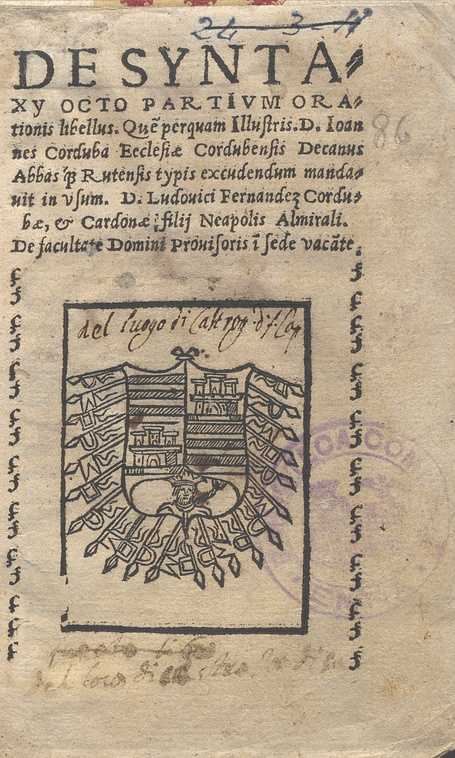 24 - 3 - 11
DE SYNTA-
XY OCTO PARTIVM ORA-
tionis libellus. Quẽ perquam Illustris. D. Ioan
86
nes Corduba Ecclesiæ Cordubensis Decanus
Abbas'q; Rutensis typis excudendum manda-
uit in vsum. D. Ludouici Fernandez Cordu-
bæ, & Cardonæ: filij Neapolis Almirali.
De facultate Domini Prouisoris ĩ sede vacãte.
del luogo di